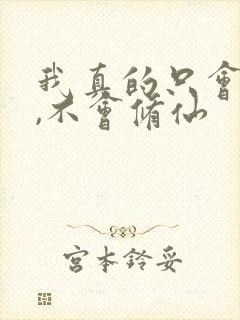 我真的只會
,不會脩仙
宮本鈴妥